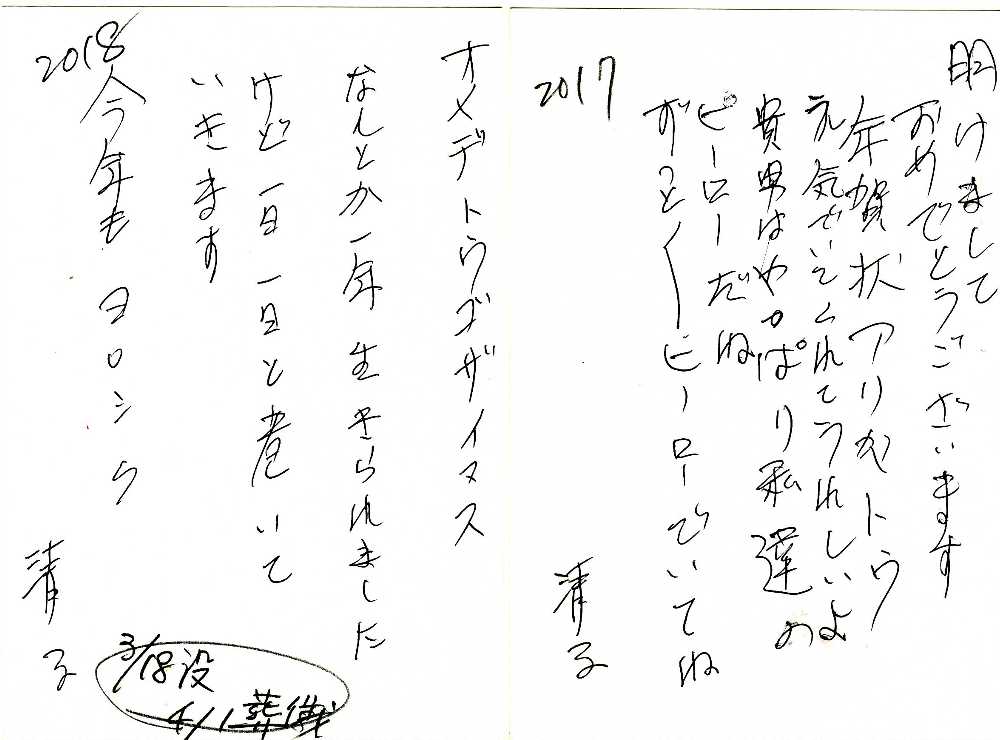 明けまして
おめでとうございます
年賀状アリガトウ
元気でいてくれてうれしいよ
貴男はやっぱり私達の
ヒーローだね
ずっと〱ヒーローでいてね
2017
清子
オメデトウゴザイマス
なんとか一年生きられました
けど一日一日と老いて
いきます
今年もヨロシク
2018
清子
3/18没
4/1葬儀